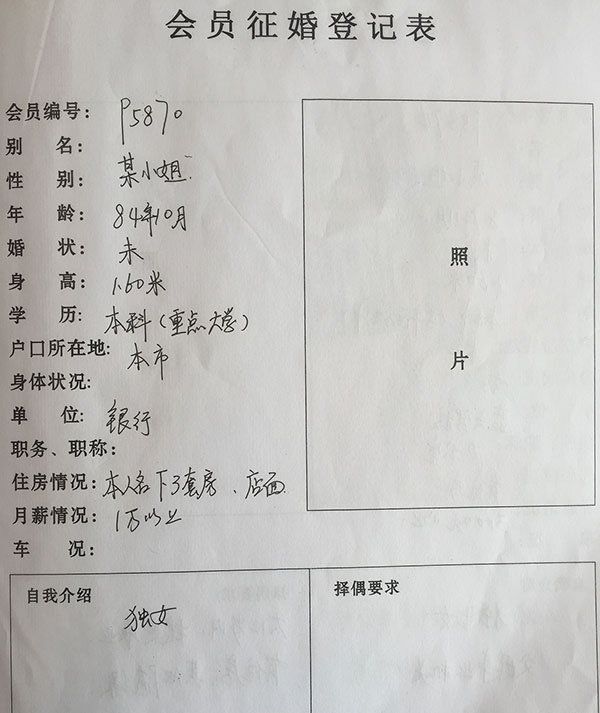 会员征婚登记表
会员编号: P5870
别 名:
性 别: 某小姐
年 龄: 84年10月
婚 状: 未
身 高: 1.60米
学 历: 本科(重点大学)
户口所在地: 本市
身体状况:
单 位: 银行
职务、职称:
住房情况: 本人名下3套房、店面
月薪情况: 1万以上
车 况:
照
片
自我介绍
独女
择偶要求